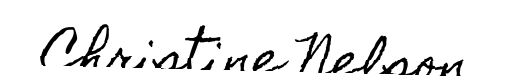 Christine Nelson